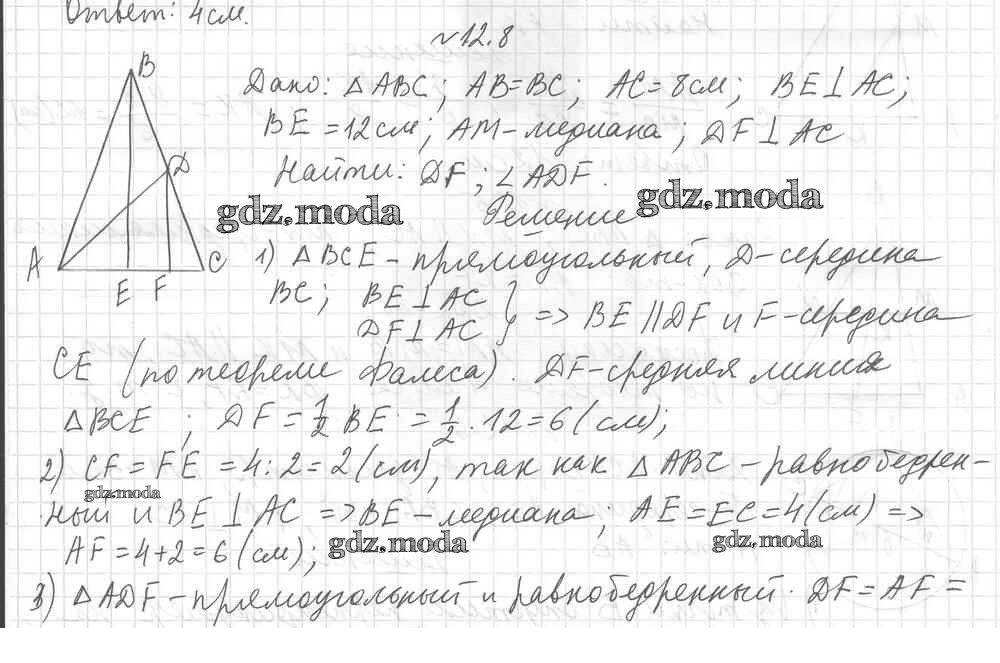 Ответ: 4 см.
№ 12.8
B
Дано: △ABC; AB=BC; AC=8см; BE⊥AC;
BE=12см; AM-медиана; DF⊥AC
Найти: DF; ∠ADF.
D
gdz.moda gdz.moda
Решение
A E F C
1) △BCE - прямоугольный, D-середина
BC; BE⊥AC
DF⊥AC } => BE||DF и F-середина
CE (по теореме Фалеса). DF-средняя линия
△BCE; DF = 1/2 BE = 1/2 · 12 = 6 (см);
2) CF = FE = 4:2 = 2 (см), так как △ABC - равнобедрен-
gdz.moda
ный и BE⊥AC => BE-медиана; AE=EC=4(см) =>
AF=4+2=6(см); gdz.moda gdz.moda
3) △ADF-прямоугольный и равнобедренный. DF=AF=